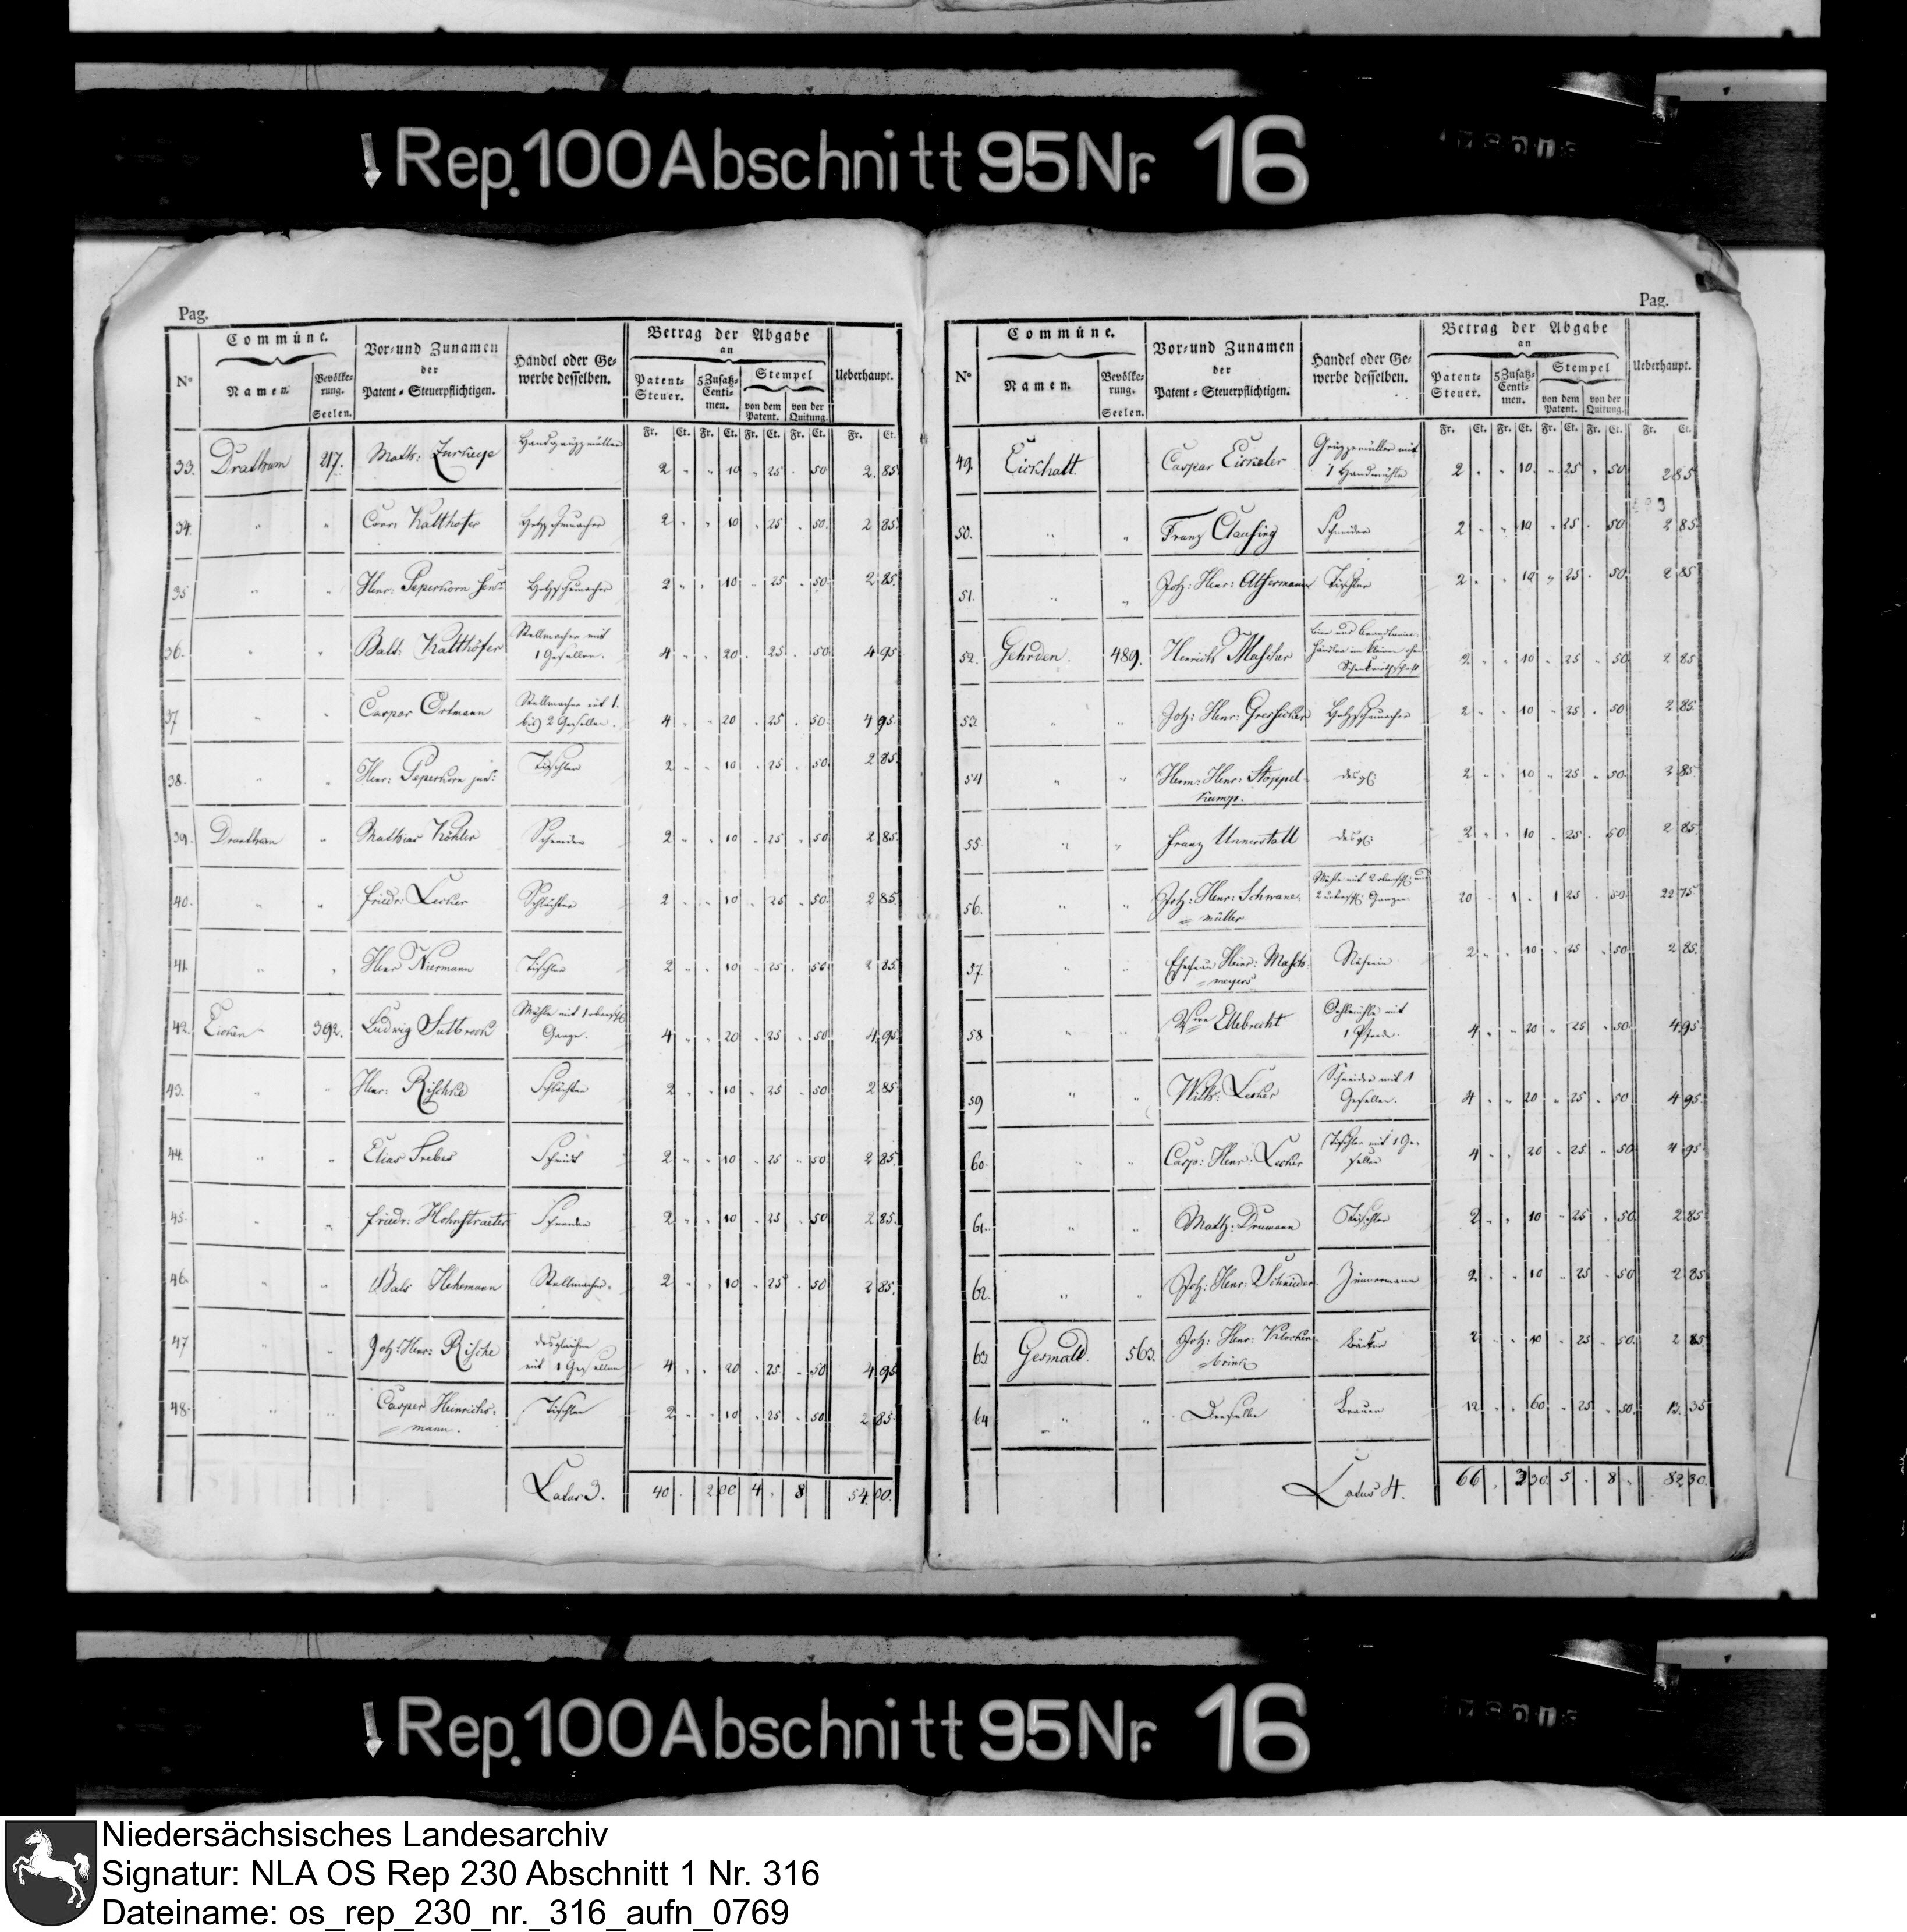 Rep. 100 Abschnitt 95 Nr. 16
Pag.
N° Commüne. Vor= und Zunamen der Patent = Steuerpflichtigen. Handel oder Ge= werbe desselben. Betrag der Abgabe an Ueberhaupt.
Namen. Bevölke= rung. Seelen. Patent= Steuer. 5 Zusatz= Centi= men. Stempel von dem Patent. von der Quitung.
Fr. Ct. Fr. Ct. Fr. Ct. Fr. Ct. Fr. Ct.
33. Drathum 217. Math: 2 " " 10 " 25 " 50 2. 85
34. " " Kalthofer Holzschumacher 2 " " 10 " 25 " 50. 2 85.
35 " " Henr: Peperkorn Senr. Holzschumacher 2 " " 10 " 25 " 50 2 85.
36. " " Balt: Kalthöfer Stellmacher mit
1 Gesellen. 4 " " 20 " 25 " 50 4 95
37 " " Caspar Ortmann Stellmacher mit 1.
bis 2 Gesellen. 4 " " 20 " 25 " 50. 4 95.
38. " " Henr: Peperkorn jun: Tischler 2 " " 10 " 25 " 50 2 85.
39. Dratham " Mathias Köhler Schneider 2 " " 10 " 25 " 50 2 85.
40. " " Friedr: Lecker Schlächter 2 " " 10 " 25 " 50. 2 85.
41. " " Henr Niermann Tischler 2 " " 10 " 25 " 50. 2 85.
42. Eicken 392. Ludwig Sutbrock Mühle mit 1
Gange. 4 " " 20 " 25 " 50 4. 95
43. " " Henr: Rischke Schlächter 2 " " 10 " 25 " 50 2 85
44. " " Elias 2 " " 10 " 25 " 50 2 85.
45. " " Friedr: Hohnstraeter Schneider 2 " " 10 " 25 " 50 2 85.
46. " " Bals Hehemann Stellmacher. 2 " " 10 " 25 " 50 2 85.
47 " " Joh: Henr: Rischke desgleichen
mit 1 Gesellen 4 " " 20 " 25 " 50 4. 95
48. " " Casper Heinrichs=
mann. Tischler 2 " " 10 " 25 " 50 2 85.
Latus 3. 40 " 2 00 4 " 8 54. 00.
Pag.
N° Commüne. Vor= und Zunamen der Patent = Steuerpflichtigen. Handel oder Ge= werbe desselben. Betrag der Abgabe an Ueberhaupt.
Namen. Bevölke= rung. Seelen. Patent= Steuer. 5 Zusatz= Centi= men. Stempel von dem Patent. von der Quitung.
Fr. Ct. Fr. Ct. Fr. Ct. Fr. Ct. Fr. Ct.
49. Eickholt Caspar Eickeler Grüzzemüller mit
1 Handmühle 2 " " 10 " 25 " 50 2 85
50. " " Franz Clausing Schneider 2 " " 10 " 25 " 50 2 85.
51. " " Joh: Henr: Altermann Tischler 2 " " 10 " 25 " 50. 2 85
52. Gehrden. 489. Henrich Bier und Brandtwein
Händler im Kleinen ohne
Schenkwirthschaft 2 " " 10 " 25 " 50 2 85
53. " " Joh: Henr: Holzschumacher 2 " " 10 " 25 " 50 2 85.
54 " " Herm: Henr: Stoppel=
kamp. desgl: 2 " " 10 " 25 " 50. 2 85.
55 " " Franz Unnerstall desgl: 2 " " 10 " 25 " 50. 2 85.
56. " " Joh: Henr: Schwane=
müller Mühle mit 2 und
2 Gangen 20 " 1 " 1 25 " 50. 22 75
57 " " Ehefrau Heinr: Masch=
meyers Näherin 2 " " 10 " 25 " 50 2 85.
58 " " Ellebrecht Oehlmühle mit
1 Pferde. 4 " " 20 " 25 " 50 4 95
59 " " Wilh: Lecker Schneider mit 1
Gesellen. 4 " " 20 " 25 " 50 4 95.
60. " " Casp: Henr: Lecker Tischler mit 1 Ge=
sellen 4 " " 20 " 25 " 50 4 95
61. " " Math: Drumann Tischler 2 " " 10 " 25 " 50. 2 85
62. " " Joh: Henr: Schnieder Zimmermann 2 " " 10 " 25 " 50 2 85
63. Gesmold. 563. Joh: Henr:
brink 2 " " 10 " 25 " 50. 2 85
64 " " Derselbe Brauer 12 " " 60 " 25 " 50. 13. 35
Latus 4. 66 " 3 30. 5 " 8 " 82 30.
Rep. 100 Abschnitt 95 Nr. 16
Niedersächsisches Landesarchiv
Signatur: NLA OS Rep 230 Abschnitt 1 Nr. 316
Dateiname: os_rep_230_nr._316_aufn_0769